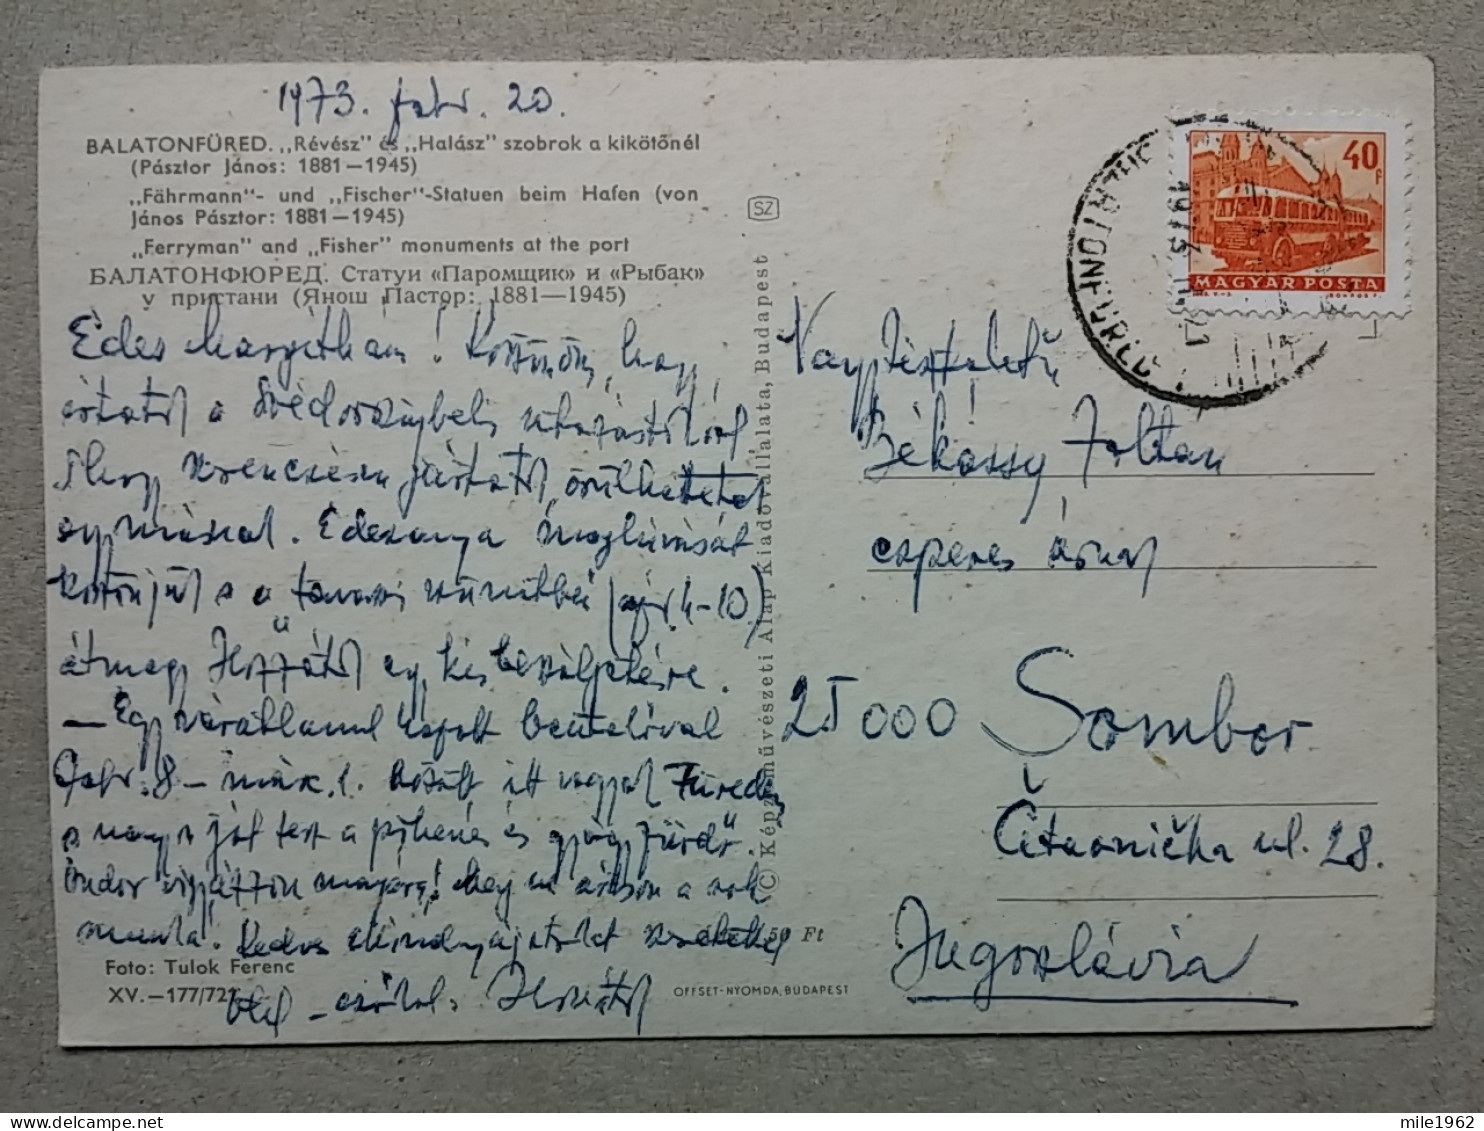 1973. febr. 20.
BALATONFÜRED. „Révész" és „Halász" szobrok a kikötőnél
(Pásztor János: 1881—1945)
„Fährmann"- und „Fischer"-Statuen beim Hafen (von
János Pásztor: 1881—1945)
„Ferryman" and „Fisher" monuments at the port
БАЛАТОНФЮРЕД. Статуи «Паромщик» и «Рыбак»
у пристани (Янош Пастор: 1881—1945)
SZ
40 f
MAGYAR POSTA
Édes Margitkám! Köszönöm, hogy
írtatok a Svédországbeli utazástokról
s hogy szerencsésen jártatok, örülhettetek
egymásnak. Édesanya meghívását
köszönjük s a tavaszi szünetben (ápr. 4-10)
átmegy Hozzátok egy kis beszélgetésre.
— Egy váratlanul kapott beutalóval
febr. 8 - márc. 1. között itt vagyok Füreden
s nagyon jól test a pihenés és gyógyfürdő
munka! Kedves mindnyájatokat
Nagytiszteletű
Békássy Zoltán
esperes úrnak
25000 Sombor
Čitaonička ul. 28.
Jugoszlávia
(C) Képzőművészeti Alap Kiadóvállalata, Budapest
50 Ft
Foto: Tulok Ferenc
XV.—177/72
OFFSET-NYOMDA, BUDAPEST
mile1962